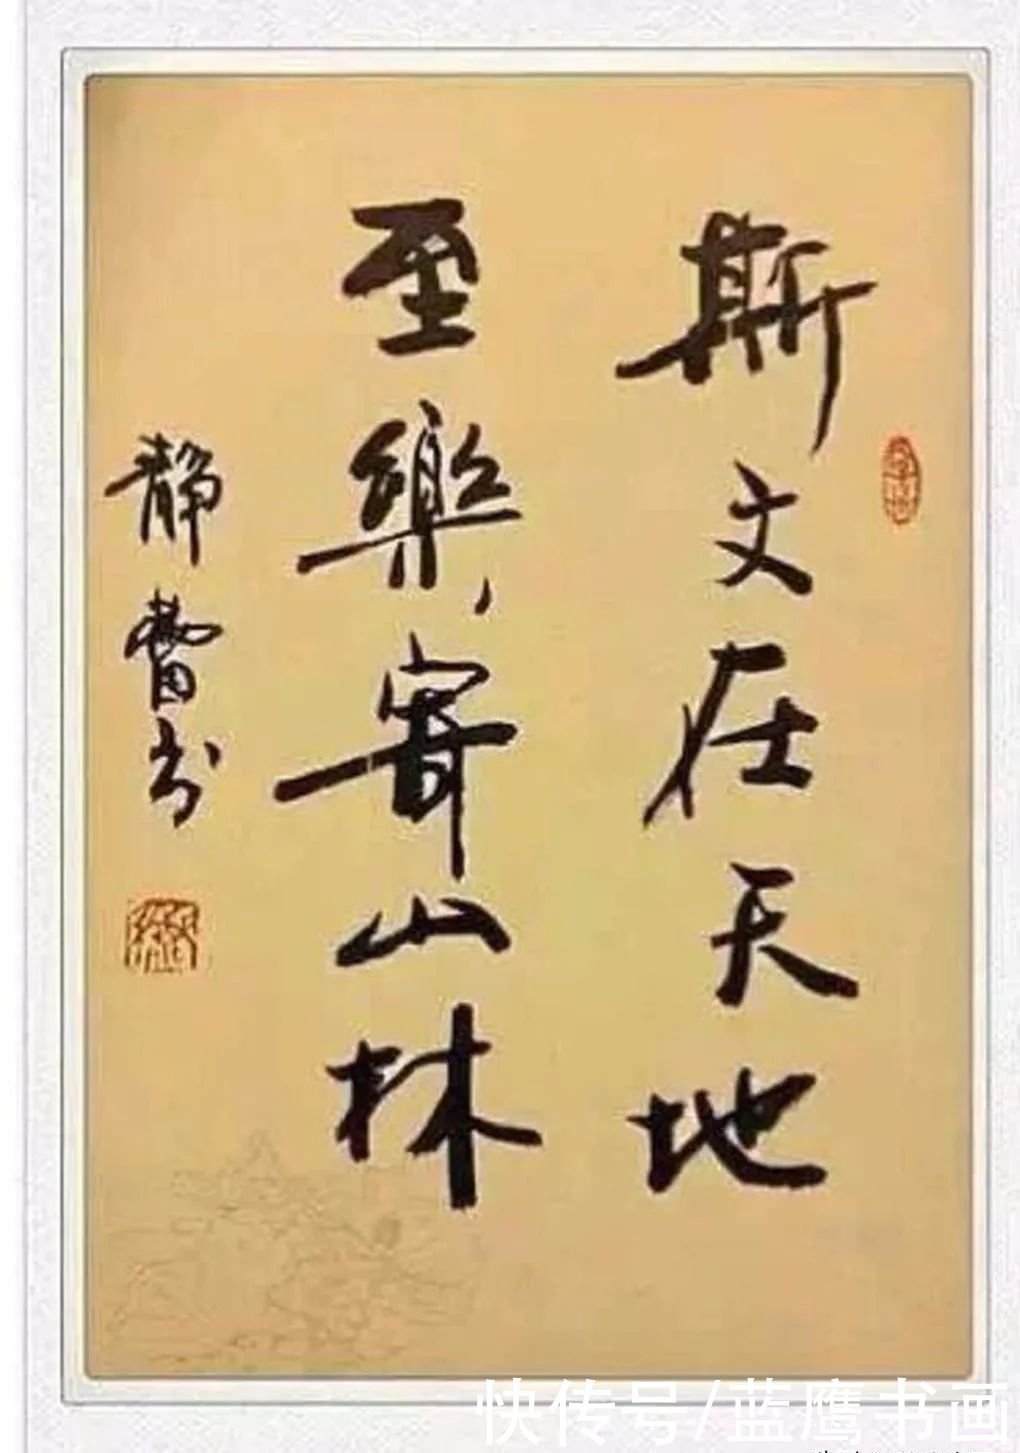 斯文在天地
至樂寄山林
静 書
快传号/蓝鹰书画